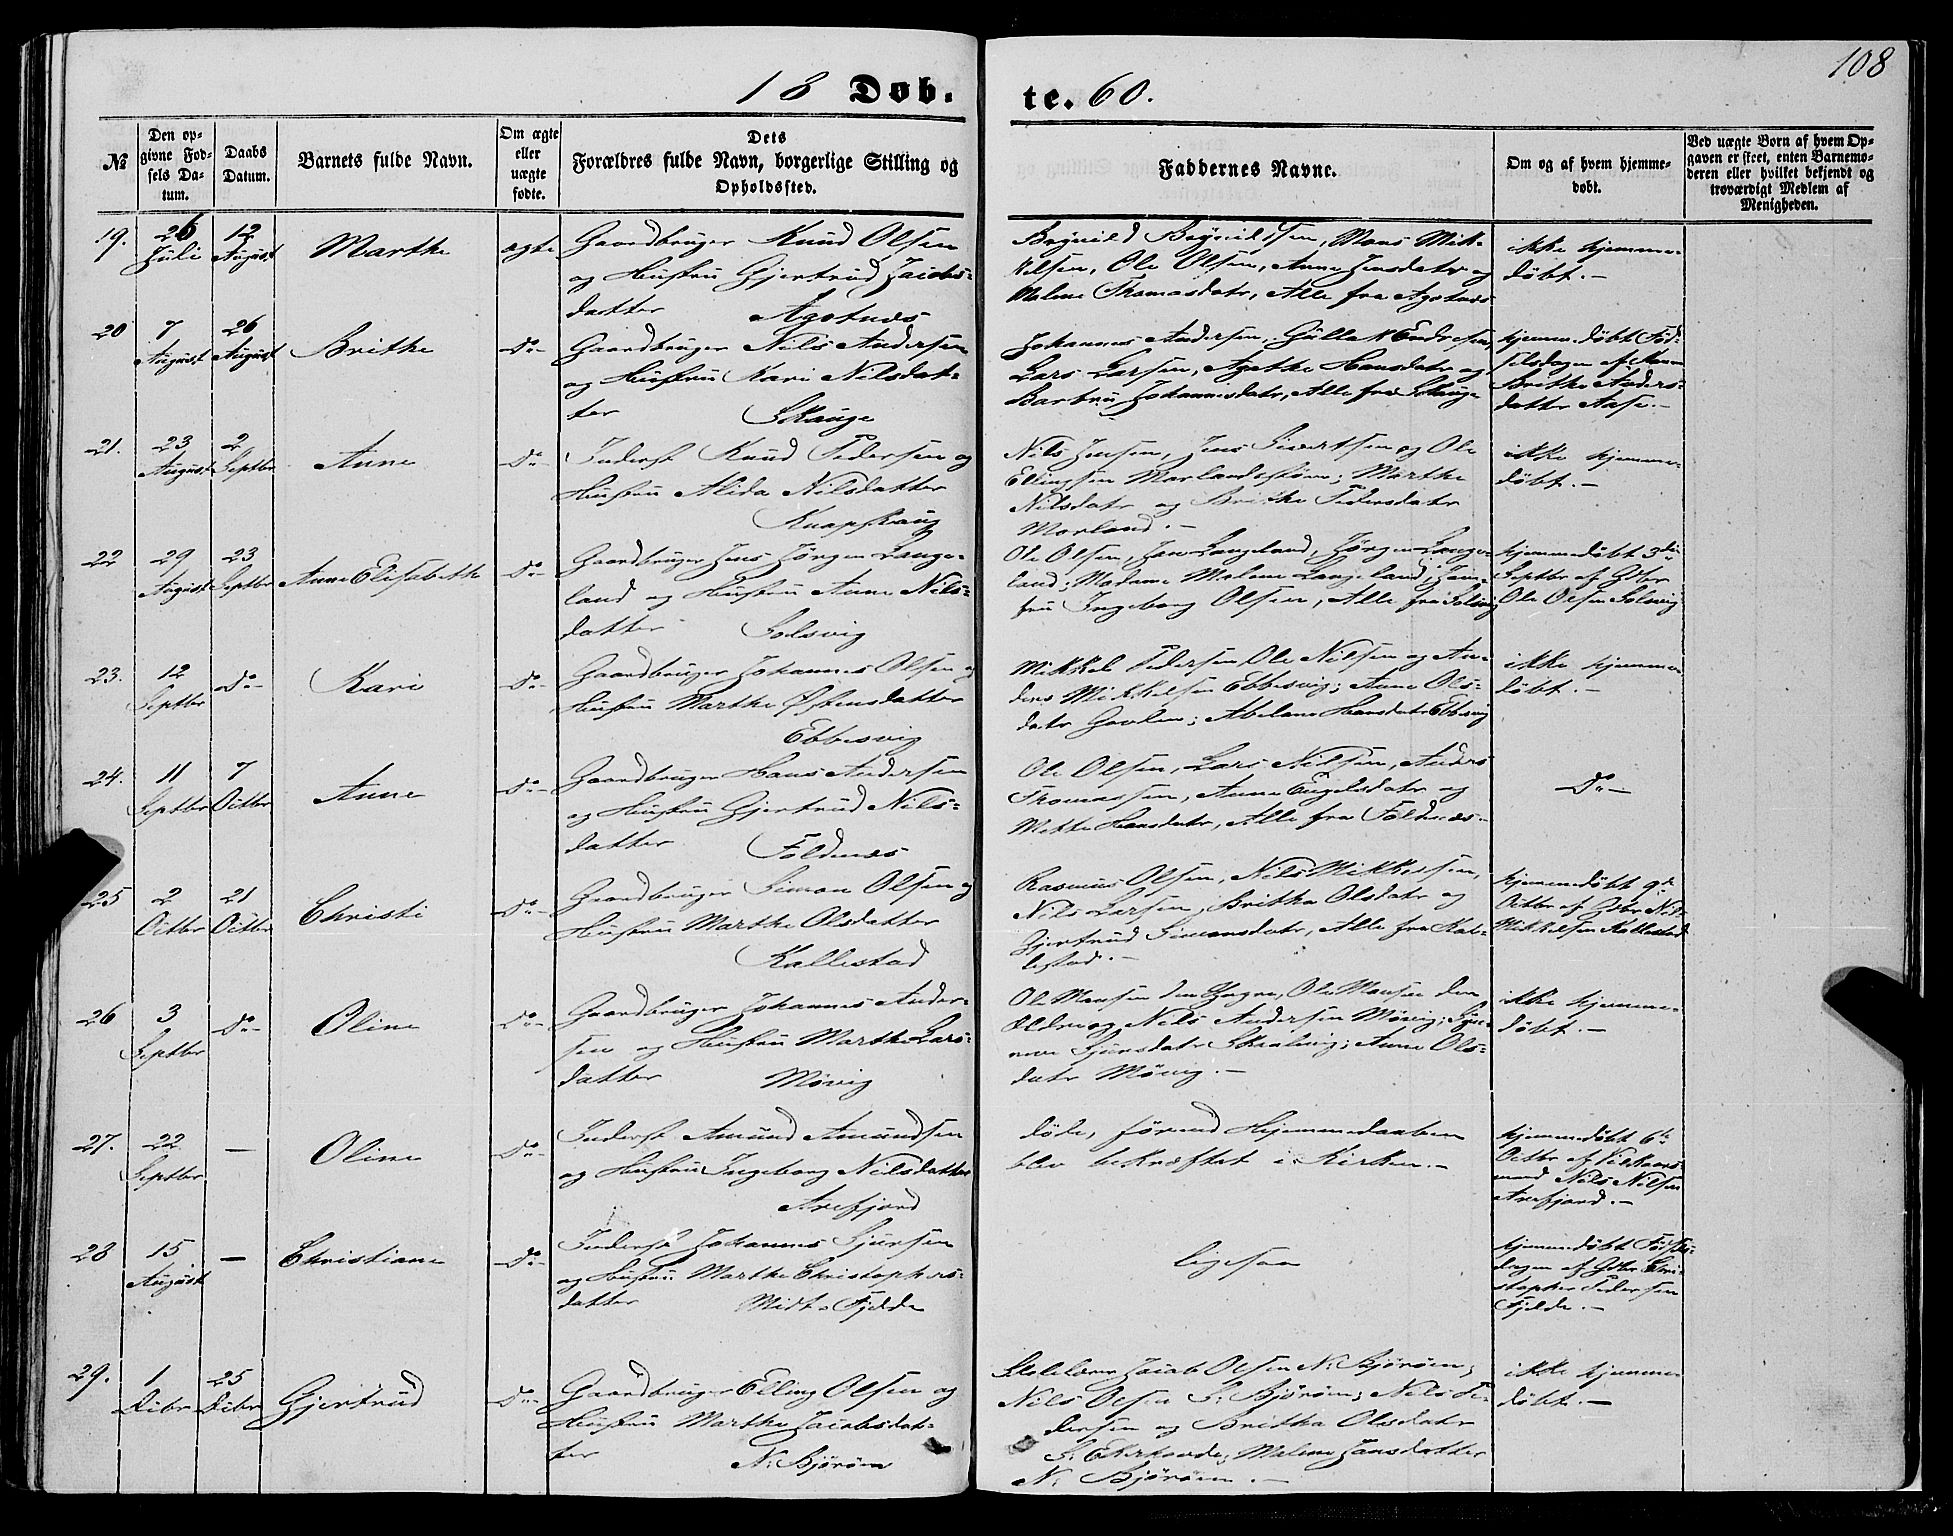 108
18 Døb-
te. 60.
№
Den op-
givne Fød-
sels Da-
tum.
Daabs
Datum.
Barnets fulde Navn.
Om ægte
eller
uægte
fødte.
Dets
Forældres fulde Navn, borgerlige Stilling og
Opholdssted.
Faddernes Navne.
Om og af hvem hjemme-
døbt.
Ved uægte Børn af hvem Op-
gaven er skeet, enten Barnemo-
deren eller hvilket bekjendt og
troværdigt Medlem af
Menigheden.
19.
26
Juli
12
August
Marthe
ægte
Gaardbruger Knud Olsen
og Hustru Gjertrud Jacobs-
datter Agotnæs
Brynild Brynildsen, Mons Mik-
kelsen, Ole Olsen, Anne Jensdatr og
Malene Thomasdatr, Alle fra Agotnæs
ikke hjemme-
døbt.-
20
7
August
26
August
Brithe
Do-
Gaardbruger Nils Andersen
og Hustru Kari Nilsdat-
ter
Skauge
Johannes Andersen, Gulleik Endresen,
Lars Larsen, Agathe Hansdatr og
Barbru Johannesdatr, Alle fra Skauge
hjemmedøbt Fød-
selsdagen af Kone
Brithe Anders-
datter Aase.-
21.
23
August
2
Septbr
Anne
Do-
Inderst Knud Pedersen og
Hustru Alida Nilsdatter
Knapskaug
Nils Jensen, Jens Sivertsen og Ole
Ellingsen Morlandsstøen; Marthe
Nilsdatr og Brithe Pedersdatr
Morland.-
ikke hjemme-
døbt.-
22
29
August
23
Septbr
Anne Elisabeth
Do-
Gaardbruger Jens Jørgen Lange-
land og Hustru Anne Nils-
datter Solsvig
Ole Olsen, Jens Langeland, Jørgen Lange-
land; Madame Malene Langeland; Jom-
fru Ingeborg Olsen, Alle fra Solsvig
hjemmedøbt 3die
Septbr af Gdbr
Ole Olsen Solsvig
23.
12
Septbr
Do-
Kari
Do-
Gaardbruger Johannes Olsen og
Hustru Marthe Østensdatter
Ebbesvig
Mikkel Pedersen, Ole Nilsen og An-
ders Mikkelsen Ebbesvig; Anne Ols-
datr Gavlen; Abelone Hansdatr Ebbesvig
ikke hjemme-
døbt.-
24.
11
Septbr
7
Octbr
Anne
Do-
Gaardbruger Hans Andersen
og Hustru Gjertrud Nils-
datter Foldnæs
Ole Olsen, Lars Nilsen, Anders
Thomassen, Anne Engelsdatr og
Mette Hansdatr, Alle fra Foldnæs-
Do-
25
2
Octbr
21
Octbr
Christi
Do-
Gaardbruger Simon Olsen og
Hustru Marthe Olsdatter
Kallestad
Rasmus Olsen, Nils Mikkelsen,
Nils Larsen, Britha Olsdatr og
Gjertrud Simonsdatr, Alle fra Kal-
lestad.-
hjemmedøbt 9de
Octbr af Gdbr Nils
Mikkelsen Kallestad
26
3
Septbr
Do-
Oline
Do-
Gaardbruger Johannes Ander-
sen og Hustru Marthe Lars-
datter Møvig
Ole Monsen den Yngre, Ole Monsen den
Ældre og Nils Andersen Møvig;
Sjursdatr Skaalvig; Anne Ols-
datr Møvig.-
ikke hjemme-
døbt.-
27.
22
Septbr
-
Oline
Do-
Inderst Amund Amundsen
og Hustru Ingeborg Nilsdatter
Arefjord
døde, førend Hjemmedaaben
blev bekræftet i Kirken.-
hjemmedøbt 6te
Octbr af
mand Nils Nilsen
Arefjord.-
28
15
August
-
Christiane
Do-
Inderst Johannes Sjursen
og Hustru Marthe Christophers-
datter Midt-Fjelde
ligesaa
hjemmedøbt Fødsels-
dagen af Gdbr Chri-
stopher Pedersen
Fjelde.-
29.
1
Decbr
25
Decbr
Gjertrud
Do-
Gaardbruger Elling Olsen og
Hustru Marthe Jacobsdat-
ter
N. Bjørøen
Skolelærer Jacob Olsen N. Bjørøen;
Nils Olsen S. Bjørøen; Nils Pe-
dersen og Britha Olsdatr
S. Ekerhovde; Malene Jansdatter
N. Bjørøen.-
ikke hjemme-
døbt.-